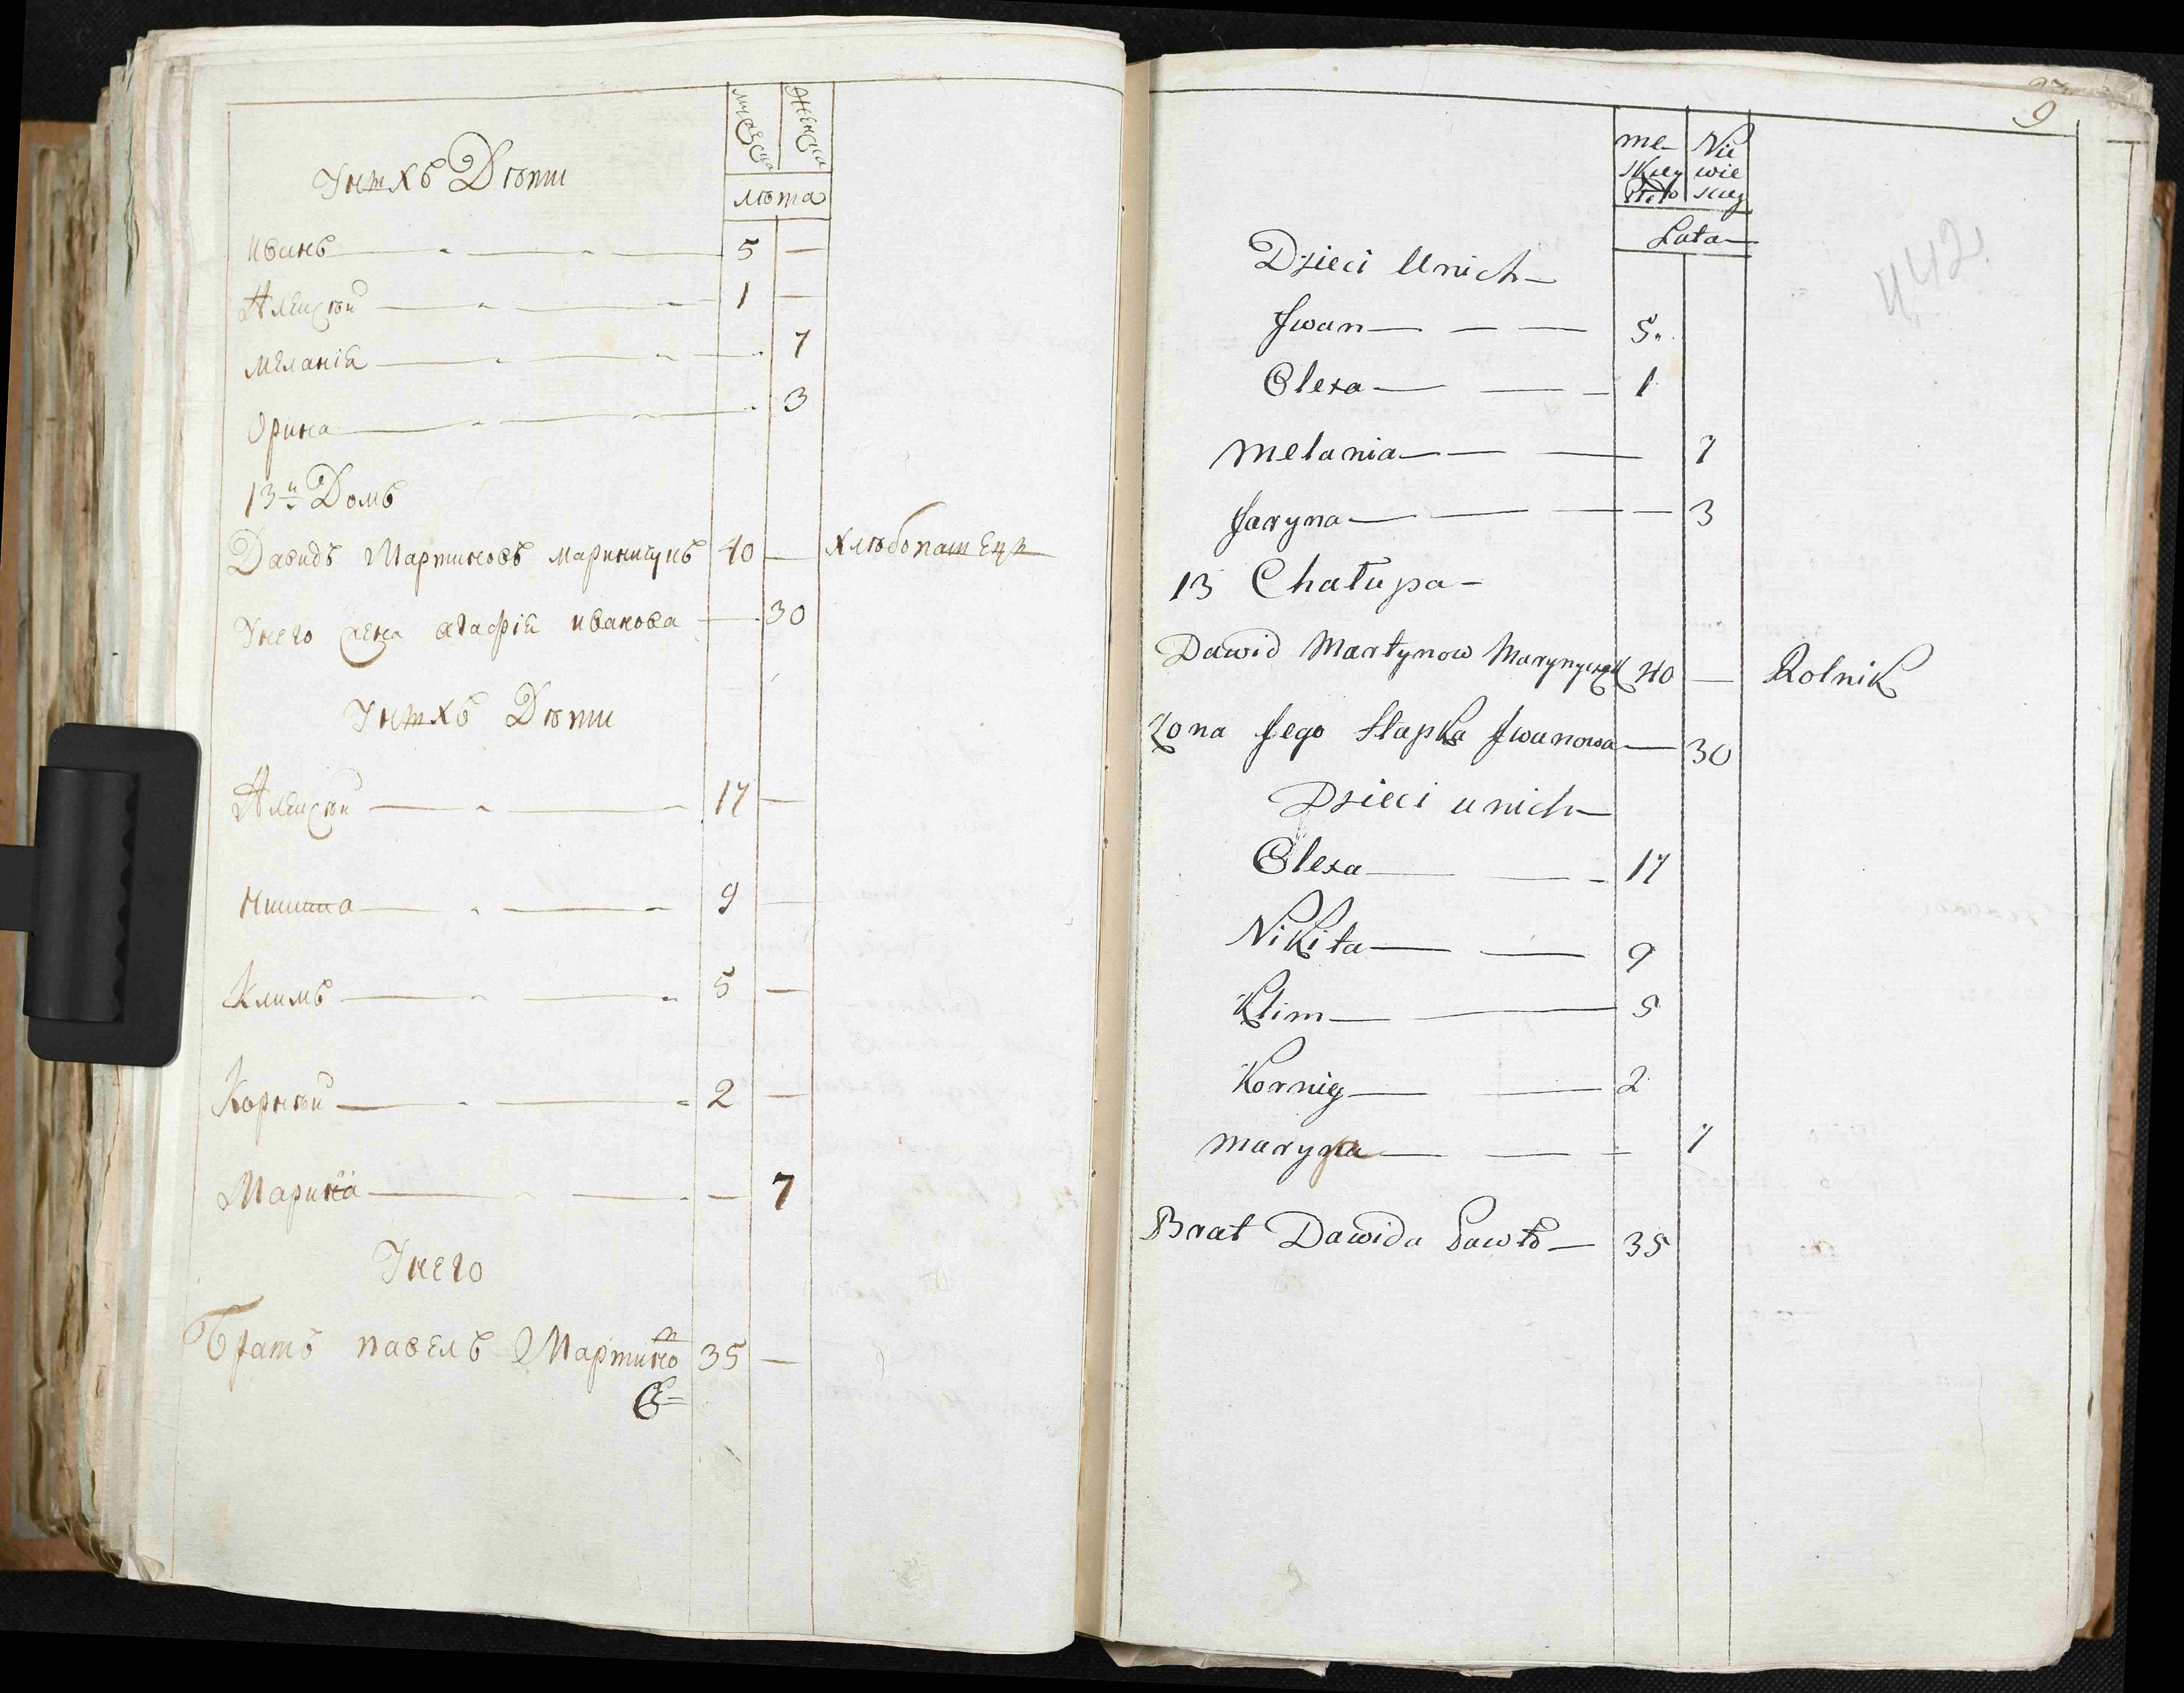 мужеска
женска
лѣта
Унихъ Дѣти
иванъ 5 —
Алексѣй 1 —
меланія 7
Орина 3
13й Домъ
Давидъ Мартиновъ мариничукъ 40 — хлѣбопашецъ
Унего жена агафія иванова — 30
Унихъ Дѣти
Алексѣй 17 —
Никита 9 —
Климъ 5 —
Корнѣй 2 —
Марина — 7
Унего
Братъ павелъ Мартино 35 —
въ
9
me- Nie
skiey wie
Płeć sciey
Lata
442
Dzieci Unich
Jwan 5
Olexa 1
Melania 7
Jaryna 3
13 Chałupa
Dawid Martynow Marynyczuk 40 — Rolnik
Żona Jego Hapka Jwanowa — 30
Dzieci unich
Olexa 17
Nikita 9
Klim 5
Korniey 2
Maryna 7
Brat Dawida Pawło 35